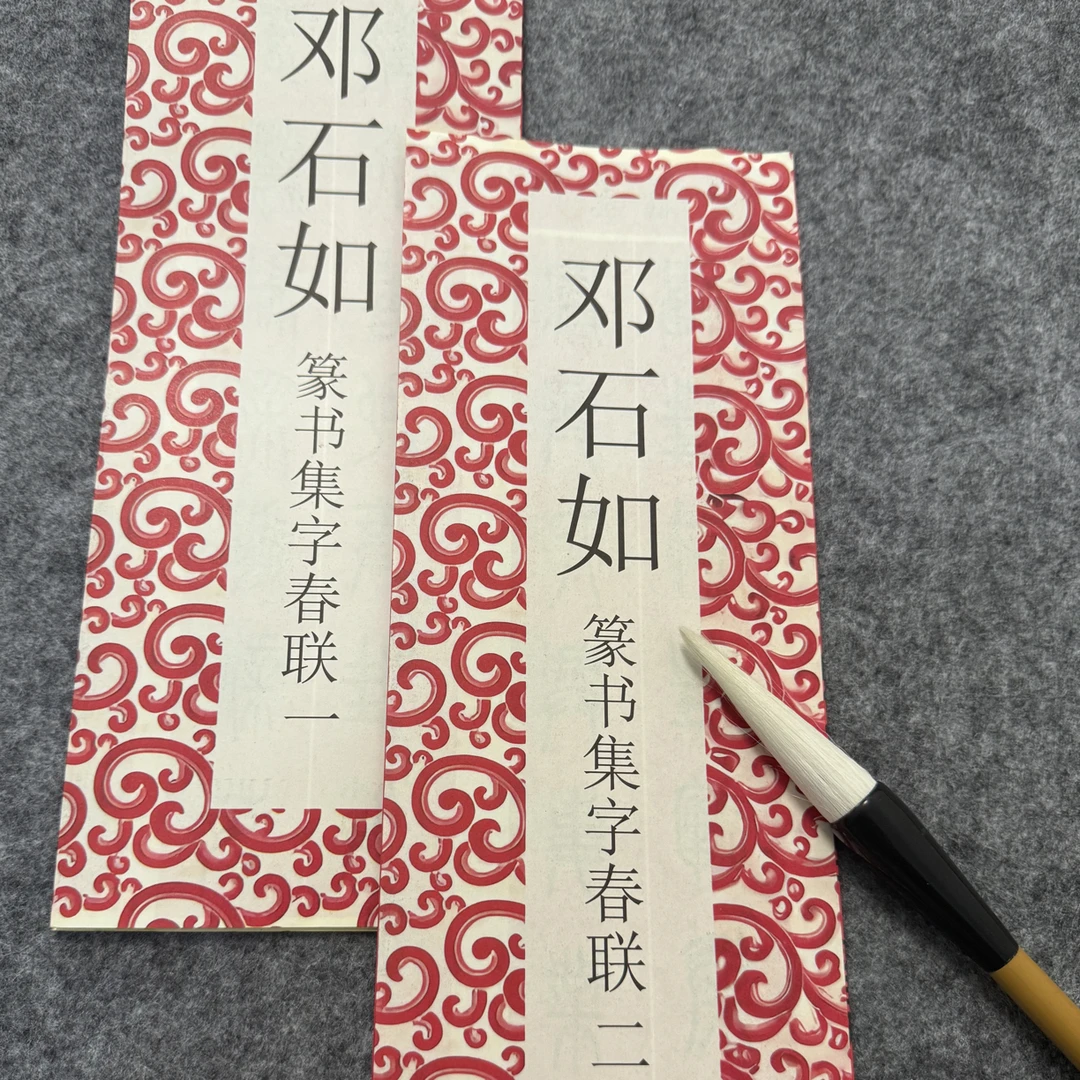 邓石如
篆书集字春联 一
邓石如
篆书集字春联 二